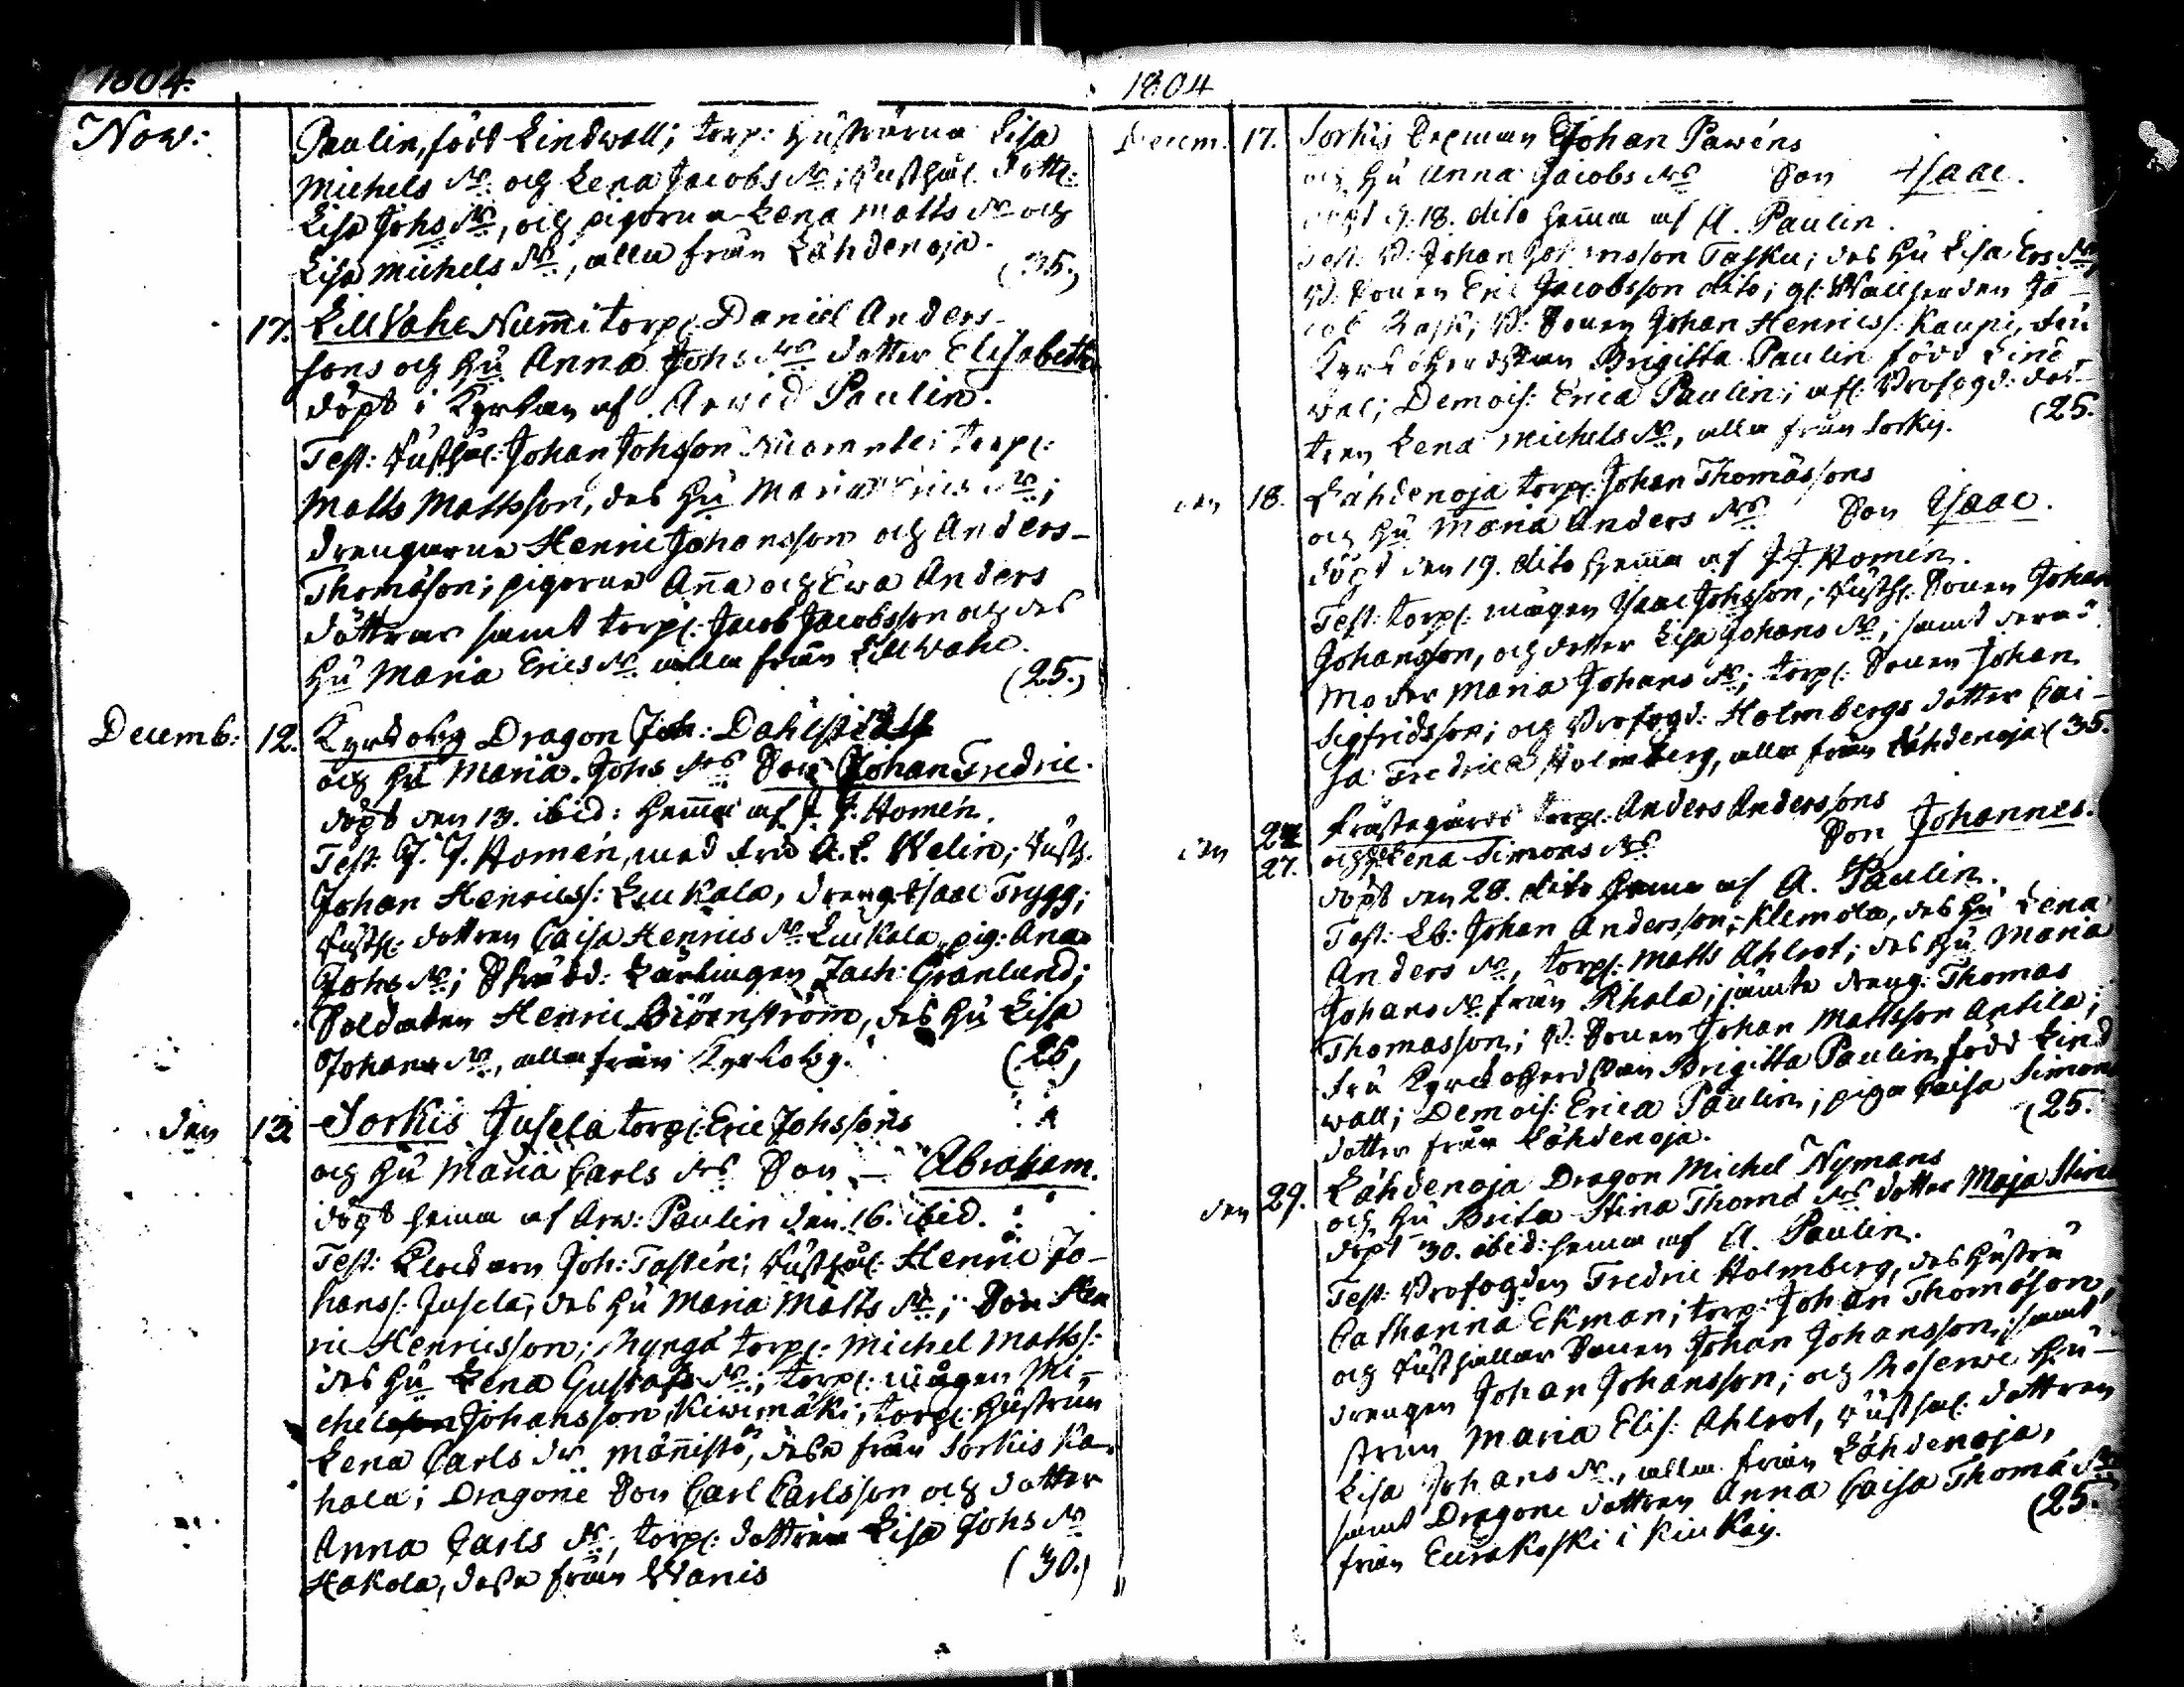 1804.
Nov:
Paulin, född Lindwall; torp: hustrurna Lisa
Michels dr. och Lena Jacobs dr; Rusthål. dottr:
Lisa Johs dr, och pigorna Lena Matts dr och
Lisa Michels dr, alla från Lähdenoja. (35.)
17. Lill Vahe Nummi torp: Daniel Anders-
sons och Hu Anna Johs drs dotter Elisabeth
döpt i Kyrkan af Arvid Paulin.
Test: Rusthål: Johan Johsson torp:
Matts Mattsson, des Hu Maria Erics dr;
drengarne Henric Johansson och Anders
Thomasson; pigorna Anna och Ewa Anders
döttrar samt torp: Jacob Jacobsson och des
Hu Maria Erics dr. alla från Lillwahe. (25.)
Decemb: 12. Kyrkoby Dragon Joh:
och Hu Maria Johs drs Son Johan Fredric.
döpt den 13. ibid: hemma af J. J. Homén.
Test: J. J. Homén, med fru A. L. Welin; Rusth.
Johan Henricss: Luukala, dreng Isaac Trygg;
Rusth: dottren Caisa Henrics dr Luukala, pig: Anna
Johs dr; Skrädd: Lärlingen Zach: Granlund;
Soldaten Henric Björnström, des Hu Lisa
Johans dr, alla från Kyrkoby. (25.)
den 13. Sorkis Jusela torp: Eric Johssons
och Hu Maria Carls drs Son — Abraham.
döpt hemma af Arv: Paulin den 16. ibid.
Test: Klockaren Joh: Tastén; Rusthål: Henric Jo-
hanss: Jusela, des Hu Maria Matts dr; Son Hen
ric Henricsson; Mynga torp: Michel Mattss:
des Hu Lena Gustafs dr; torp: mågen Mi-
chel Johansson, Kiwimäki; torp: Hustrun
Lena Carls dr. Männistö, desse från Sorkis Ka-
hala; Dragone Son Carl Carlsson och dotter
Anna Carls dr, torp: dottren Lisa Johs dr
Hakola, desse från Wanis (30.)
1804
Decem. 17. Sorkis Johan Pawéns
och Hu Anna Jacobs drs Son Isaac.
döpt d. 18. dito hemma af A. Paulin.
Test: B: Johan Johansson Tasku; des Hu Lisa Ers dr,
B: Sonen Eric Jacobsson dito; gl: Wallherden Ja-
cob Rask; B: Sonen Johan Henricss: Kaupi, fru
Kyrkoherdskan Brigitta Paulin född Lind
wal; Demois: Erica Paulin; afl: Profogd: dot-
tren Lena Michels dr, alla från Sorkis. (25.
den 18. Lähdenoja torp: Johan Thomassons
och Hu Maria Anders drs Son Isaac.
döpt den 19. dito hemma af J. J. Homén.
Test: torp: mågen Isaac Johsson, Rusth: Sonen Johan
Johansson, och dotter Lisa Johans dr; samt deras
Moder Maria Johans dr; torp: Sonen Johan
Sigfridsson; och Profogd: Holmbergs dotter Cai-
sa Fredrica Holmberg, alla från Lähdenoja (35.
den 27. Prästegårds torp: Anders Anderssons
och Hu Lena Simons drs Son Johannes.
döpt den 28. dito hemma af A. Paulin.
Test: Lb: Johan Andersson Klemola, des Hu Lena
Anders dr, torp: Matts Ahlrot; des Hu Maria
Johans dr från Ihala; jämte dreng: Thomas
Thomasson; B: Sonen Johan Mattsson Antila;
fru Kyrckoherdskan Brigitta Paulin född Lind
wall; Demois: Erica Paulin; piga Caisa Simons
dotter från Lähdenoja. (25.
den 29. Lähdenoja Dragon Michel Nymans
och Hu Brita Stina Thomæ drs dotter Maja Stina
döpt 30. ibid: hemma af A. Paulin.
Test: Profogden Fredric Holmberg, des Hustru
Catharina Ekman; torp: Johan Thomasson,
och Rusthållar Sonen Johan Johansson; samt
drengen Johan Johansson; och Reserve Hu-
strun Maria Elis: Ahlrot, Rusthål: dottren
Lisa Johans dr, alla från Lähdenoja,
samt Dragone dottren Anna Caisa Thomæ dr
från Eurakoski i Kiukais. (25.